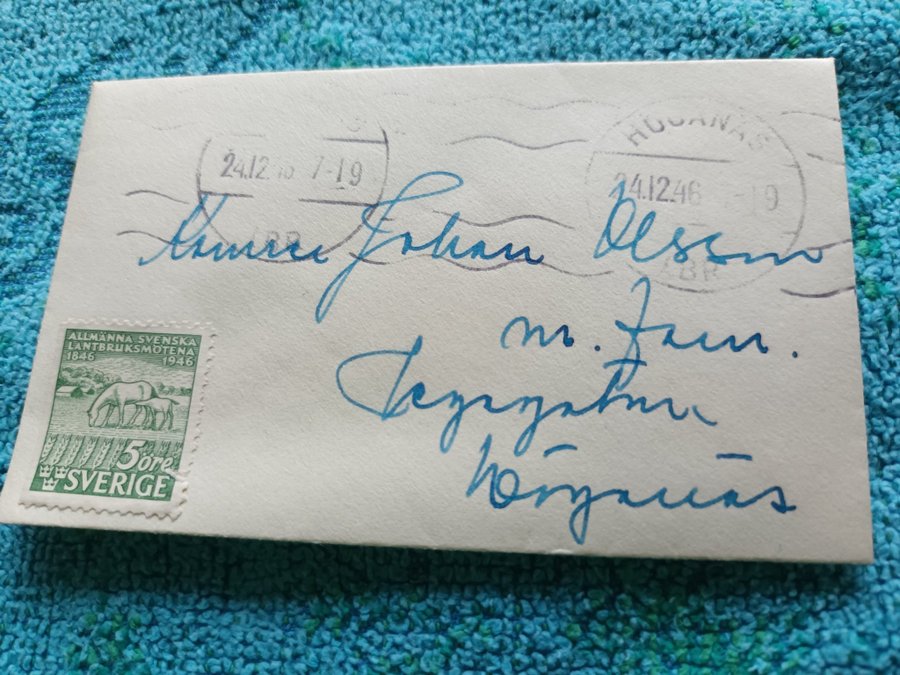 HÖGANÄS
24.12.46 7-19
24.12.46 -19
LBR
LBR
Johan Olsson
m. Fam.
Höganäs
ALLMÄNNA SVENSKA
LANTBRUKSMÖTENA
1846 1946
5 öre
SVERIGE